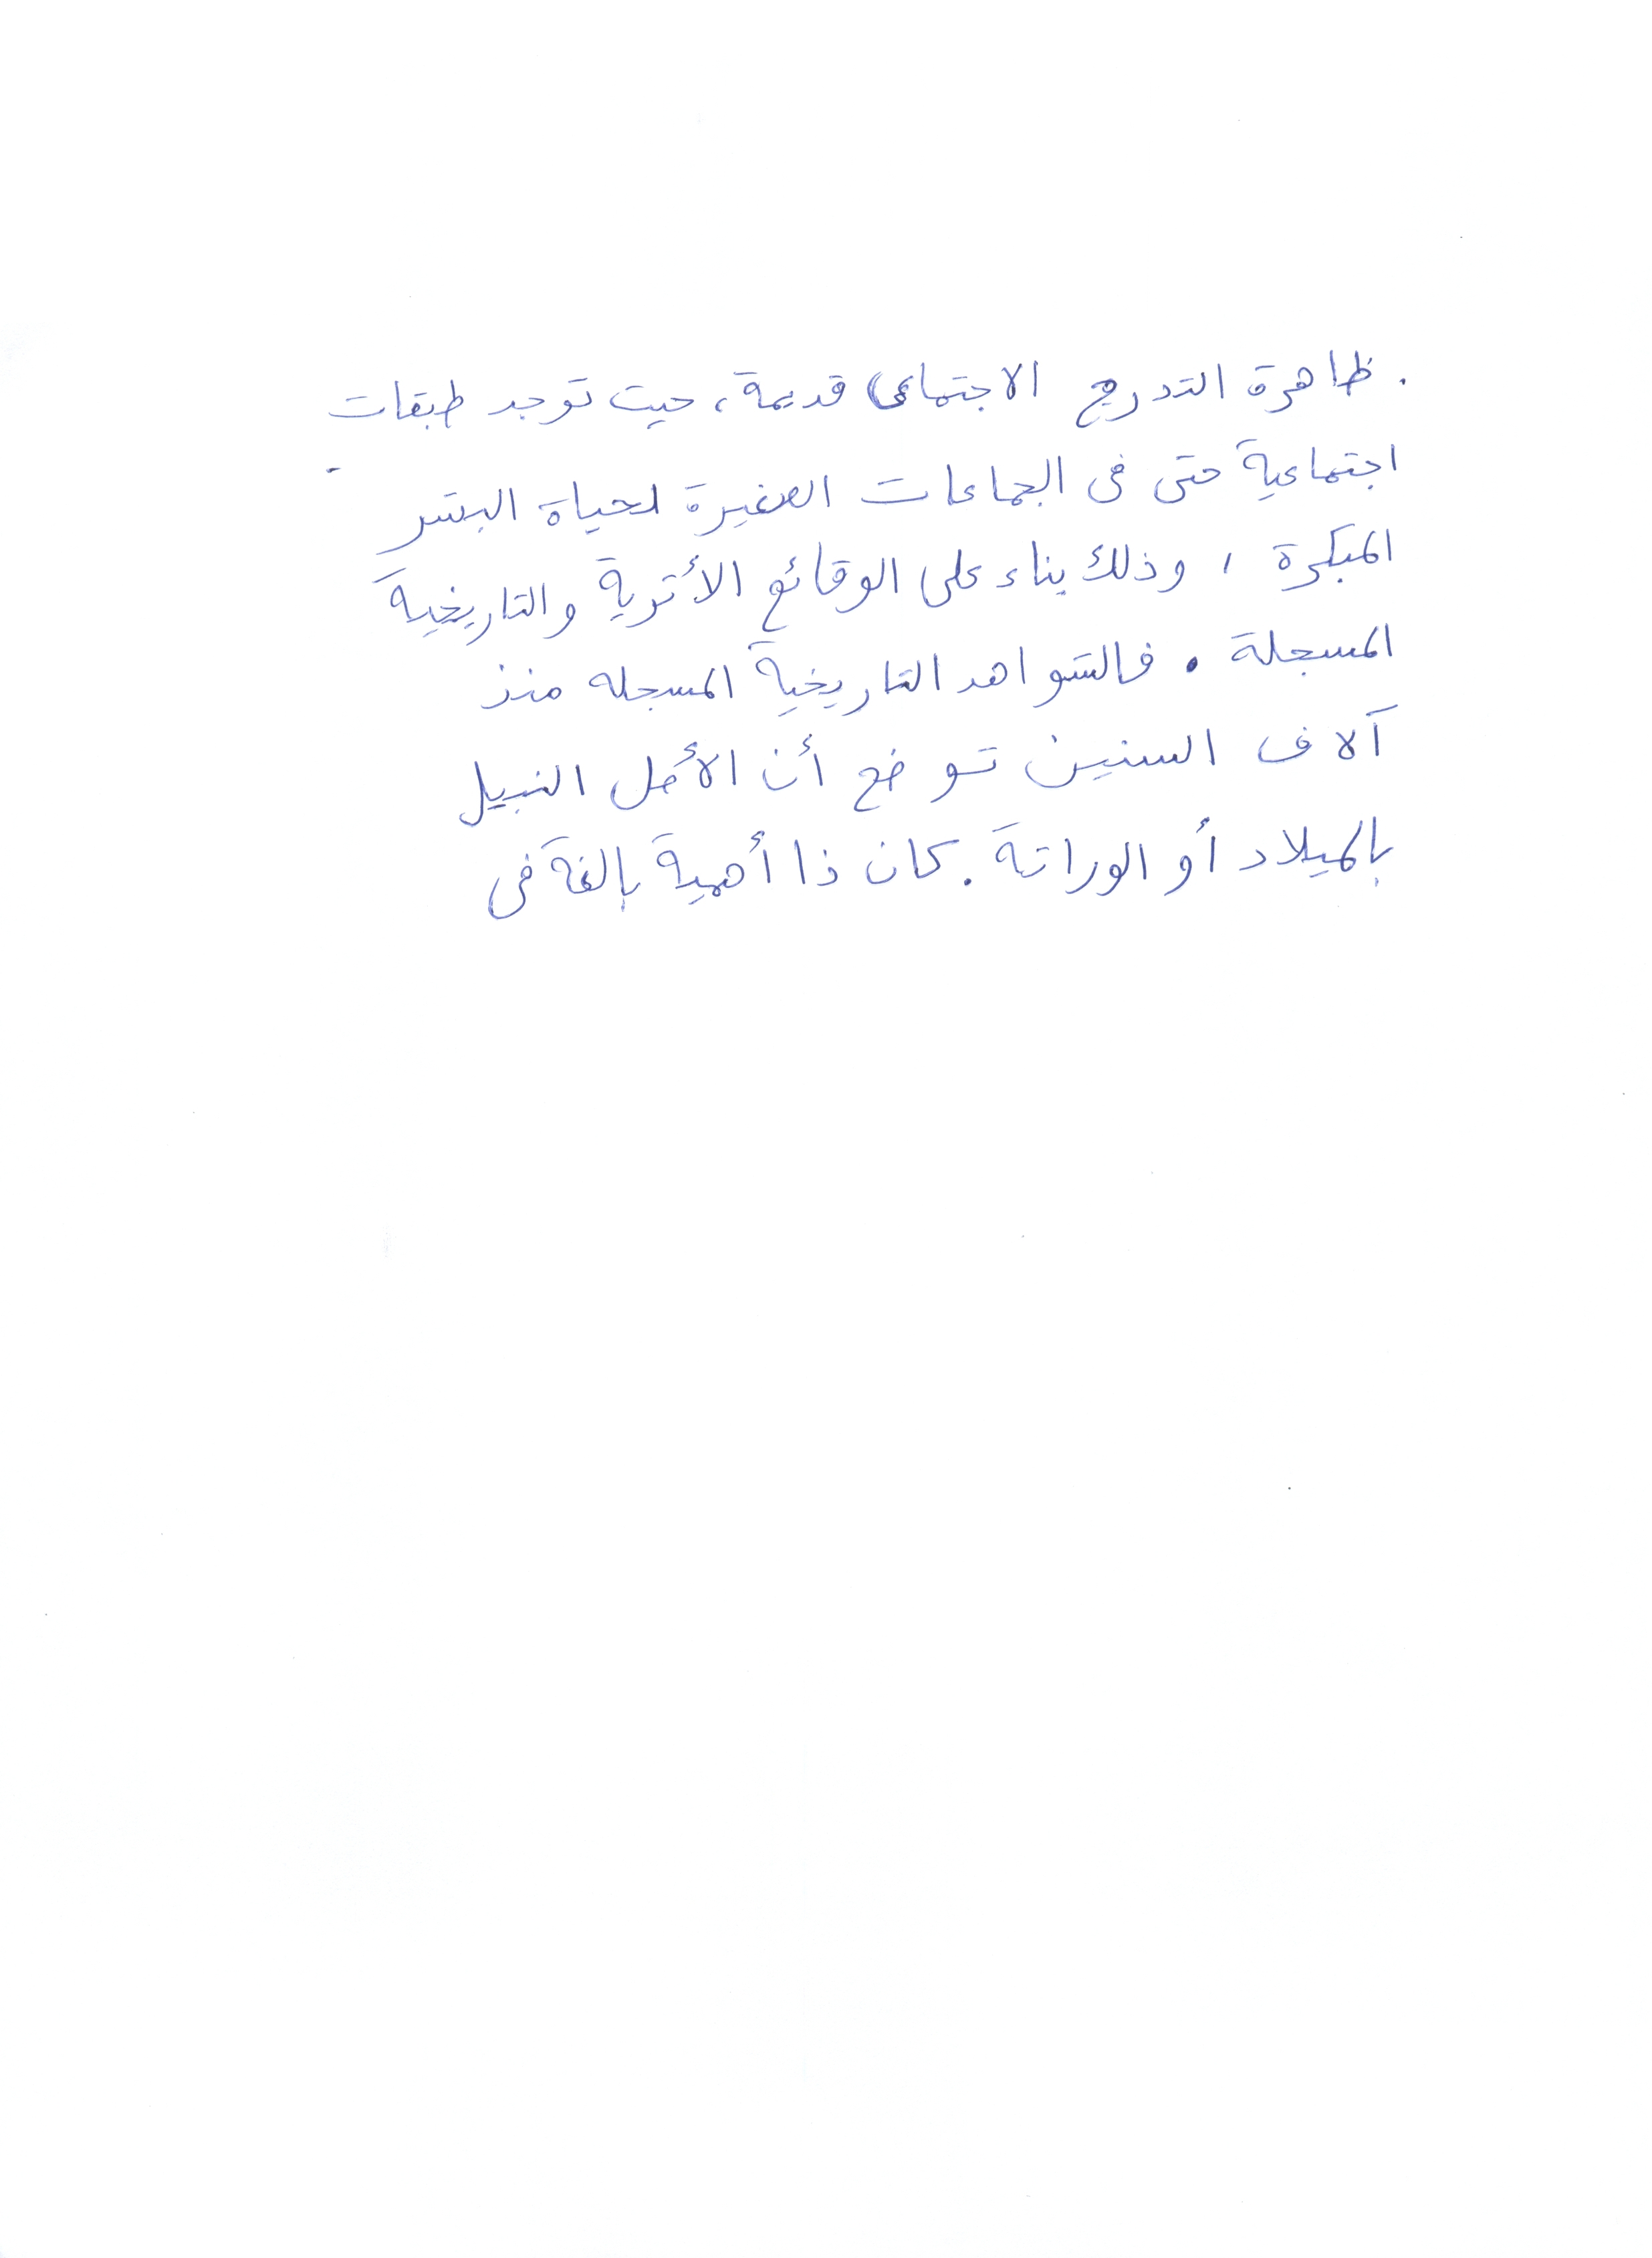 . ظاهرة التدرج الاجتماعى قديمة، حيث توجد طبقات
اجتماعية حتى فى الجماعات الصغيرة لحياة البشر
المبكرة ، وذلك بناء على الوقائع الأثرية والتاريخية
المسجلة . فالشواهد التاريخية المسجله منذ
آلاف السنين توضح أن الأصل النبيل
بالميلاد أو الوراثة . كان ذا أهمية بالغة فى